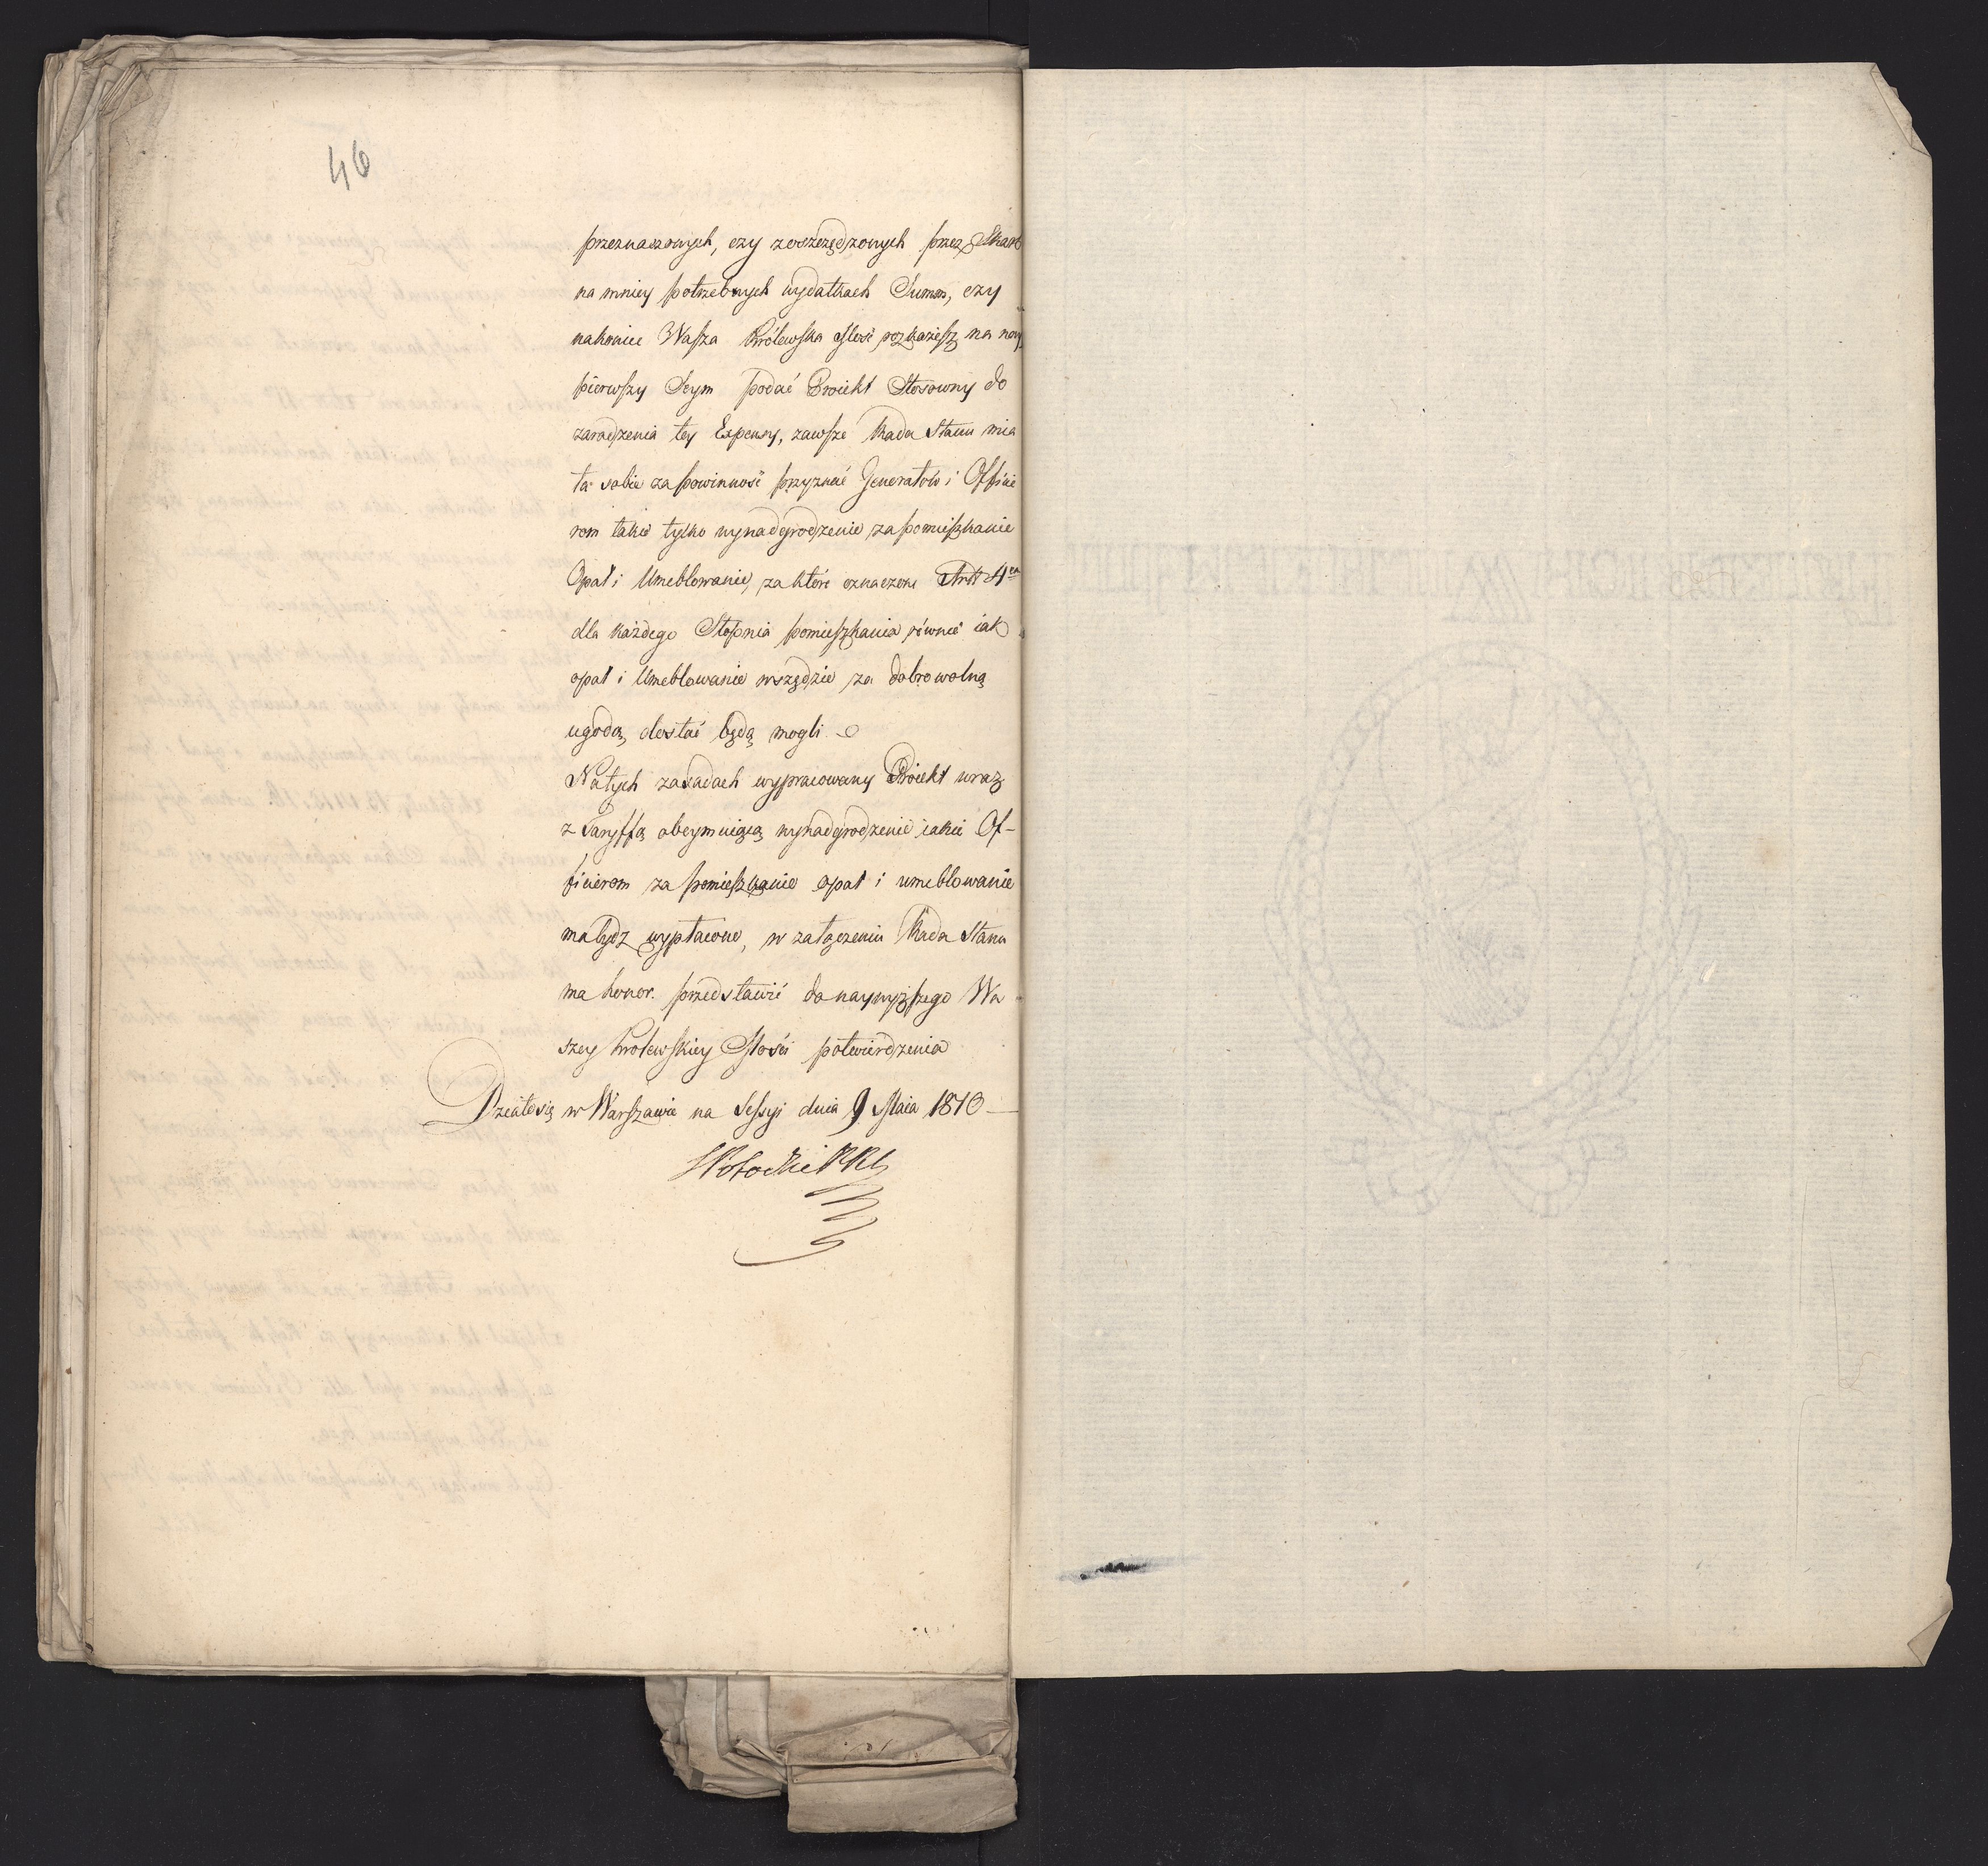 46
przeznaczonych, czy zoszczędzonych przez Skarb
na mniey potrzebnych wydatkach Summ, czy
nakoniec Wasza Królewska Mość rozkażesz na nay
pierwszy Seym podać Proiekt Stosowny do
zaradzenia tey Expensy, zawsze Rada Stanu mia
ła sobie za powinność przyznać Generałów i Offici
rom takie tylko wynadgrodzenie za pomieszkanie
Opał i Umeblowanie, za które oznaczone Artt 4m
dla każdego Stopnia pomieszkania równie iak
opał i Umeblowanie wszędzie za dobrowolną
ugodą, dostać będą mogli
Na tych zasadach wypracowany Proiekt wraz
z Taryffą obeymuiącą wynadgrodzenie iakie Of-
ficierom za pomieszkanie opał i umeblowanie
ma bydz wypłacone, w załączeniu Rada Stanu
ma honor. przedstawić do naywyższego Wa
szey Krolewskiey Mości potwierdzenia
Działo się w Warszawie na Sessyi dnia 9 Maia 1810
SPotocki PRS